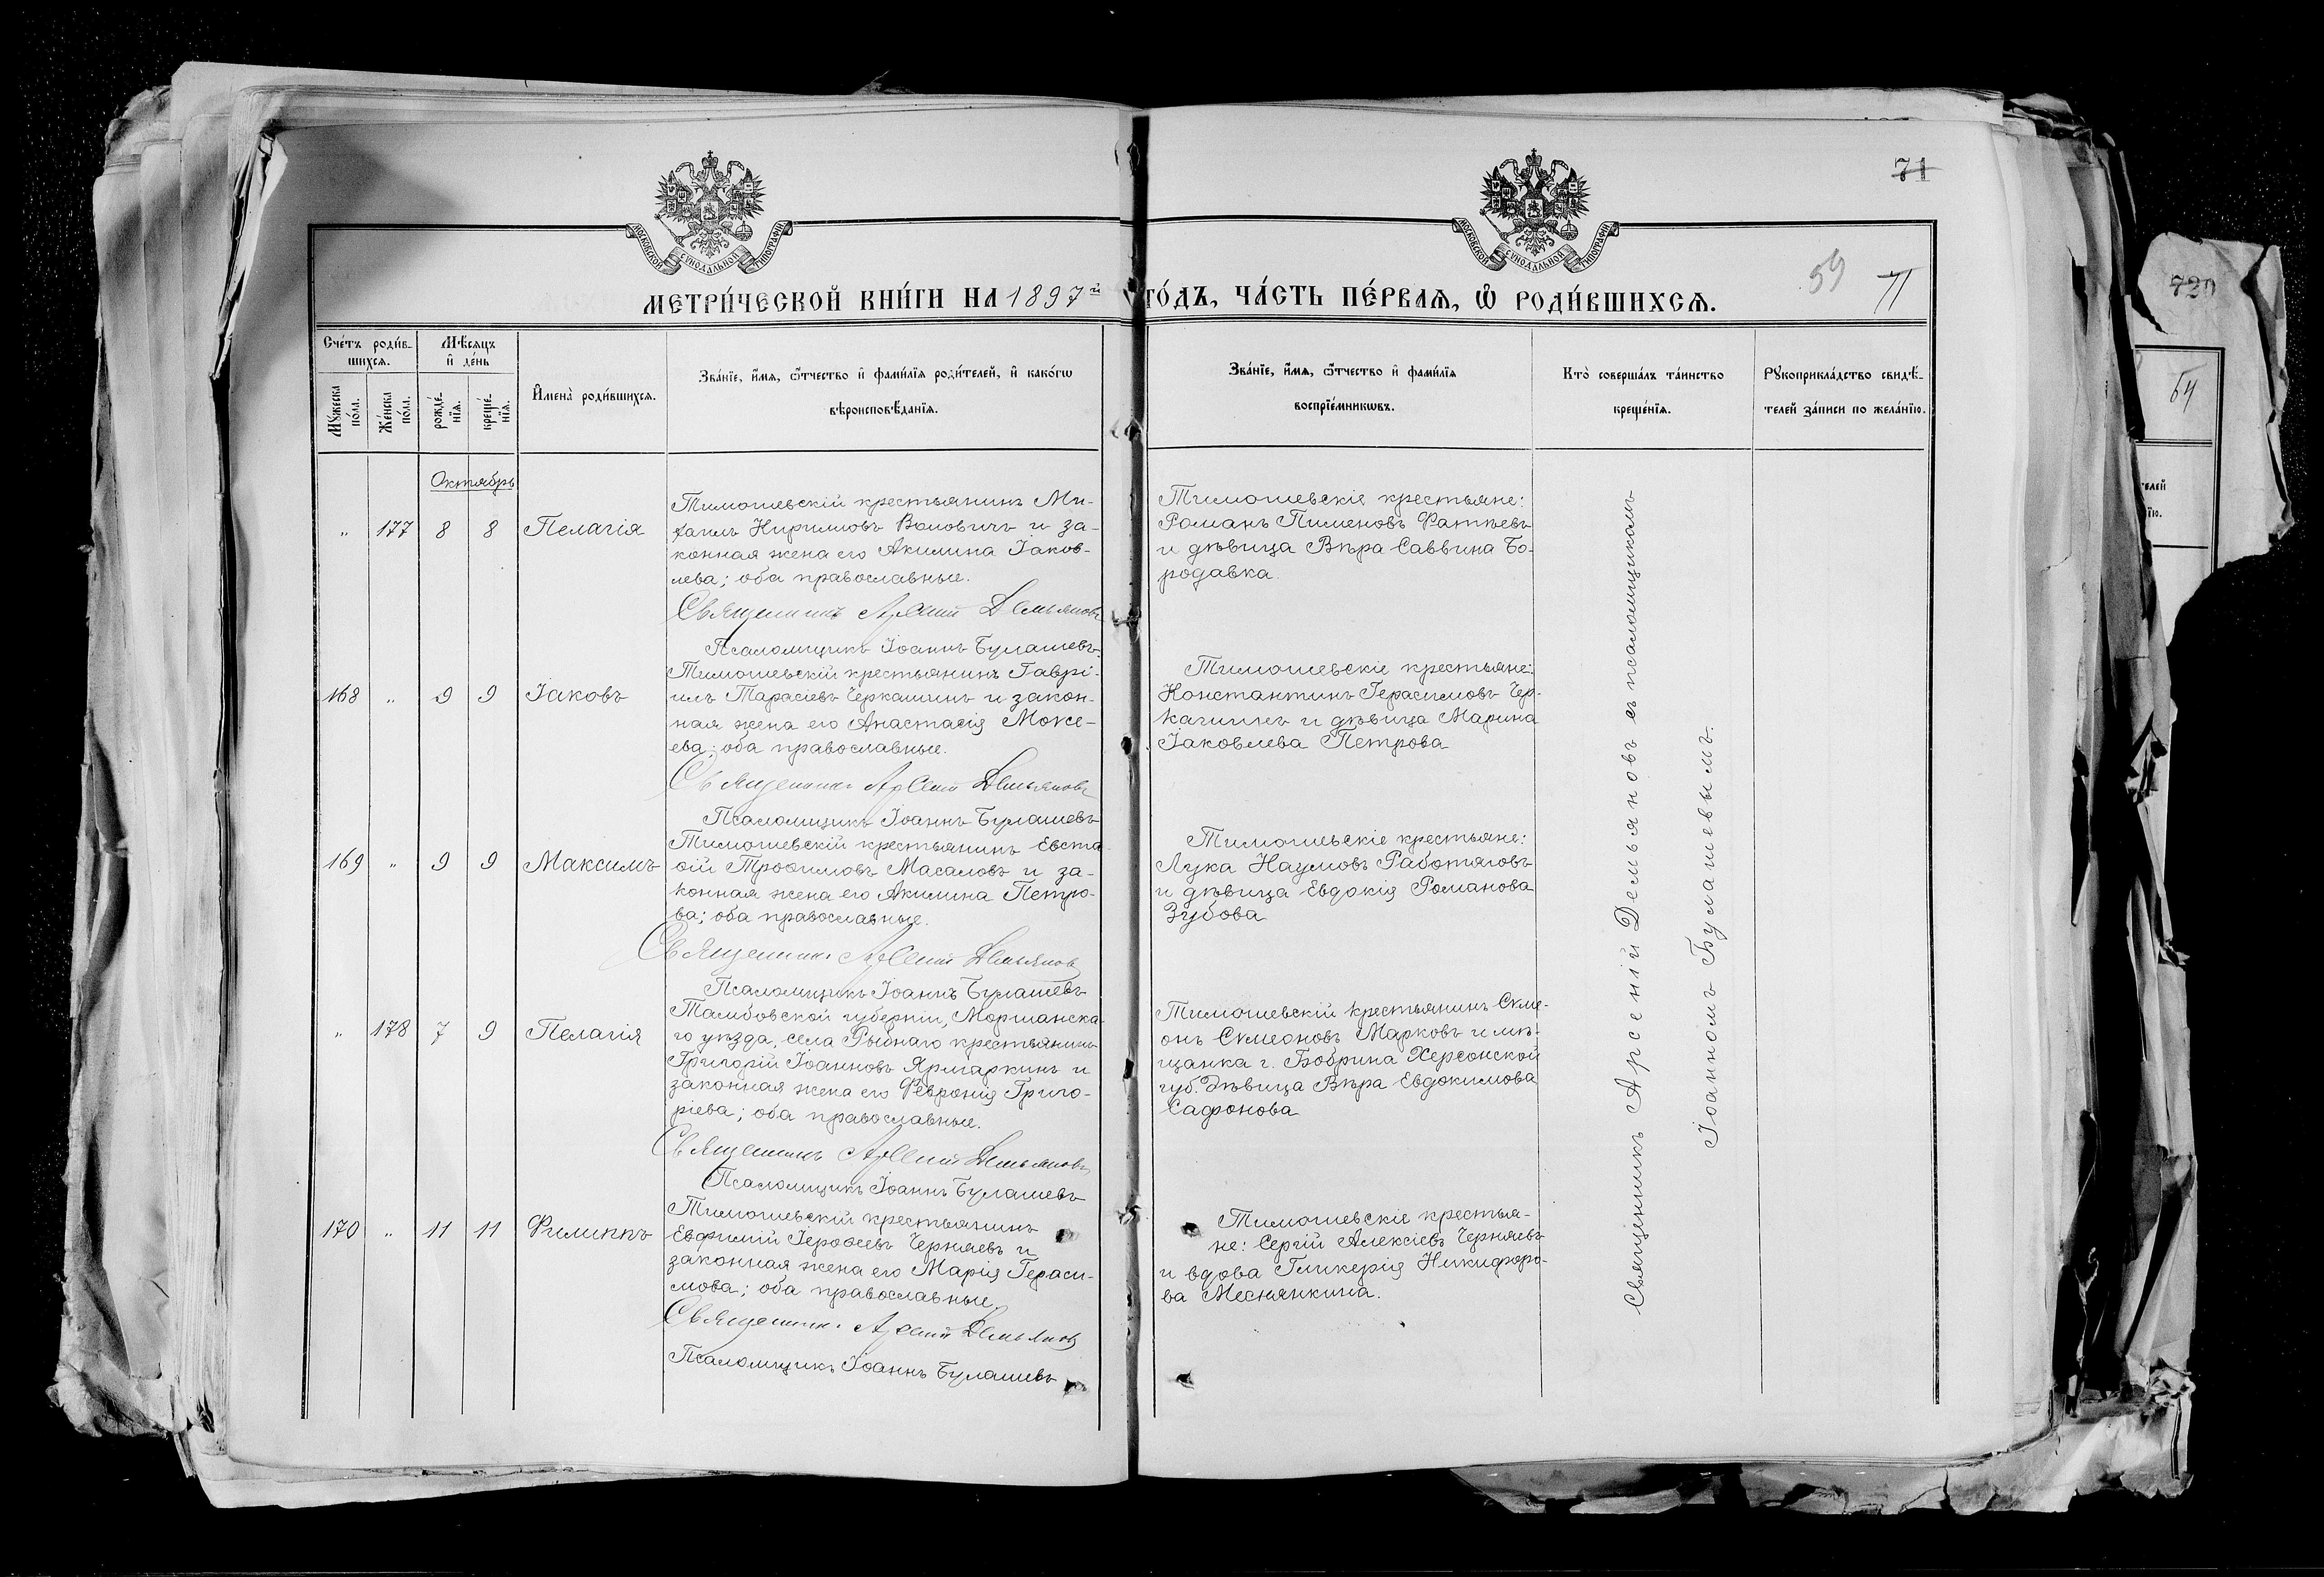 71
МОСКОВСКОЙ СѴНОДАЛЬНОЙ ТИПОГРАФІИ
МОСКОВСКОЙ СѴНОДАЛЬНОЙ ТИПОГРАФІИ
59 71
МЕТРИ́ЧЕСКОЙ КНИ́ГИ НА 1897й ГО́ДЪ, ЧА́СТЬ ПЕ́РВАѦ, Ѽ РОДИ́ВШИХСѦ.
Сче́тъ роди́в-
шихсѧ.
Мꙋ́жеска
по́ла.
Же́нска
по́ла.
Мѣ́сѧцъ
и҆ де́нь
рожде́-
нїѧ.
креще́-
нїѧ.
И҆мена̀ роди́вшихсѧ.
Зва́нїе, и҆́мѧ, ѻ҆́тчество и҆ фами́лїѧ роди́телей, и҆ како́гѡ
вѣроисповѣ́данїѧ.
Зва́нїе, и҆́мѧ, ѻ҆́тчество и҆ фами́лїѧ
воспрїе́мникѡвъ.
Кто̀ соверша́лъ та́инство
креще́нїѧ.
Рꙋкоприкла́дство свидѣ́-
телей за́писи по жела́нїю.
Октябрь
„ 177 8 8 Пелагія
Тимошевскій крестьянинъ Ми-
хаилъ Киримовъ Воловичъ и за-
конная жена его Акилина Іаков-
лева; оба православные.
Священникъ Арсеній Демьяновъ
Псаломщикъ Іоаннъ Булашевъ
Тимошевскіе крестьяне:
Романъ Пименовъ Фатѣевъ
и дѣвица Вѣра Саввина Бо-
родавка.
168 „ 9 9 Іаковъ
Тимошевскій крестьянинъ Гаврі-
илъ Тарасіевъ Черкашинъ и закон-
ная жена его Анастасія Моисе-
ева; оба православные.
Священникъ Арсеній Демьяновъ
Псаломщикъ Іоаннъ Булашевъ
Тимошевскіе крестьяне:
Константинъ Герасимовъ Чер-
кашинъ и дѣвица Марина
Іаковлева Петрова
169 „ 9 9 Максимъ
Тимошевскій крестьянинъ Евста-
ѳій Трофимовъ Масаловъ и за-
конная жена его Акилина Петро-
ва; оба православные.
Священникъ Арсеній Демьяновъ
Псаломщикъ Іоаннъ Булашевъ
Тимошевскіе крестьяне:
Лука Наумовъ Работяговъ
и дѣвица Евдокія Романова
Зубова
„ 178 7 9 Пелагія
Тамбовской губерніи, Моршанска-
го уѣзда, села Рыбнаго крестьянинъ
Григорій Іоанновъ Ярмаркинъ и
законная жена его Февронія Григо-
ріева; оба православные.
Священникъ Арсеній Демьяновъ
Псаломщикъ Іоаннъ Булашевъ
Тимошевскій крестьянинъ Сѵме-
онъ Сѵмеоновъ Марковъ и мѣ-
щанка г. Бобрина Херсонской
губ. дѣвица Вѣра Евдокимова
Сафонова
170 „ 11 11 Филиппъ
Тимошевскій крестьянинъ
Евфимій Іероѳеевъ Черняевъ и
законная жена его Марія Гераси-
мова; оба православные.
Священникъ Арсеній Демьяновъ
Псаломщикъ Іоаннъ Булашевъ
Тимошевскіе крестья-
не: Сергій Алексіевъ Черняевъ
и вдова Гликерія Никифоро-
ва Меснянкина.
Священникъ Арсеній Демьяновъ съ псаломщикомъ
Іоанномъ Булашевымъ.
720
64
телей
їю.